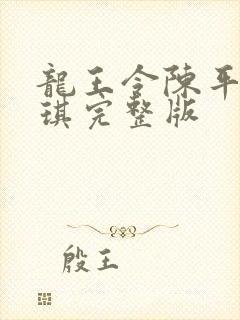 龍王令陳平
琪完整版
殷王